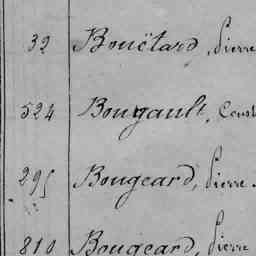 32 Bouëtard, Pierre
524 Bougault, Const
295 Bougeard, Pierre.
810 Bougeard, Pierre